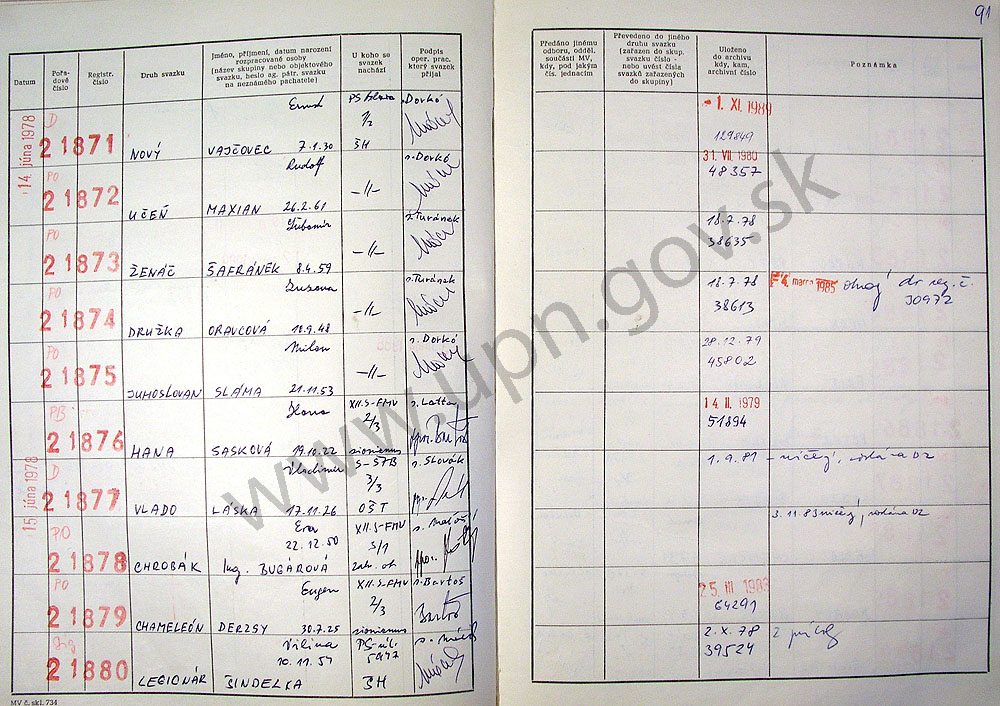 91
Datum
Pořadové číslo
Registr. číslo
Druh svazku
Jméno, příjmení, datum narození
rozpracované osoby
(název skupiny nebo objektového
svazku, heslo ag. pátr. svazku
na neznámého pachatele)
U koho se
svazek
nachází
Podpis
oper. prac.
který svazek
přijal
Předáno jinému
odboru, odděl.
součásti MV,
kdy, pod jakým
čís. jednacím
Převedeno do jiného
druhu svazku
(zařazen do skup.
svazku číslo -
nebo uvést čísla
svazků zařazených
do skupiny)
Uloženo
do archivu
kdy, kam,
archivní číslo
Poznámka
14. júna 1978
D
21871 NOVÝ VAJČOVEC 7.1.30 ŠH
Dorkó
1. XI. 1989
129849
PO Rudolf
21872 UČEŇ MAXIAN 26.2.61 -//-
Dorkó
31. VII. 1980
48357
PO Ľubomír
21873 ŽENÁČ ŠAFRÁNEK 8.4.59 -//-
Turánek
18.7.78
38635
PO Zuzana
21874 DRUŽKA ORAVCOVÁ 18.9.48 -//-
Turánek
18.7.78
38613
4. marca 1985
30972
PO Milan
21875 JUHOSLOVAN SLÁMA 21.11.53 -//-
Dorkó
28.12.79
45802
15. júna 1978
PB Hana XII.S-FMV
2/3
21876 HANA SASKOVÁ 19.10.22 sionismus
Latta
14. II. 1979
51894
D Vladimír S-ŠTB
3/3
21877 VLADO LÁSKA 17.11.26 OŠT
Slovák
1.9.81
PO Eva XII.S-FMV
22.12.50 3/1
21878 CHROBÁK Ing. BUGÁROVÁ
3.11.83
PO Eugen XII.S-FMV
2/3
21879 CHAMELEÓN DERZSY 30.7.25 sionismus
Bartoš
25. III 1983
64291
Vilina
10.11.57
21880 LEGIONÁR ŠINDELKA ŠH
2.X.78
39524
MV č. skl. 734
www.upn.gov.sk